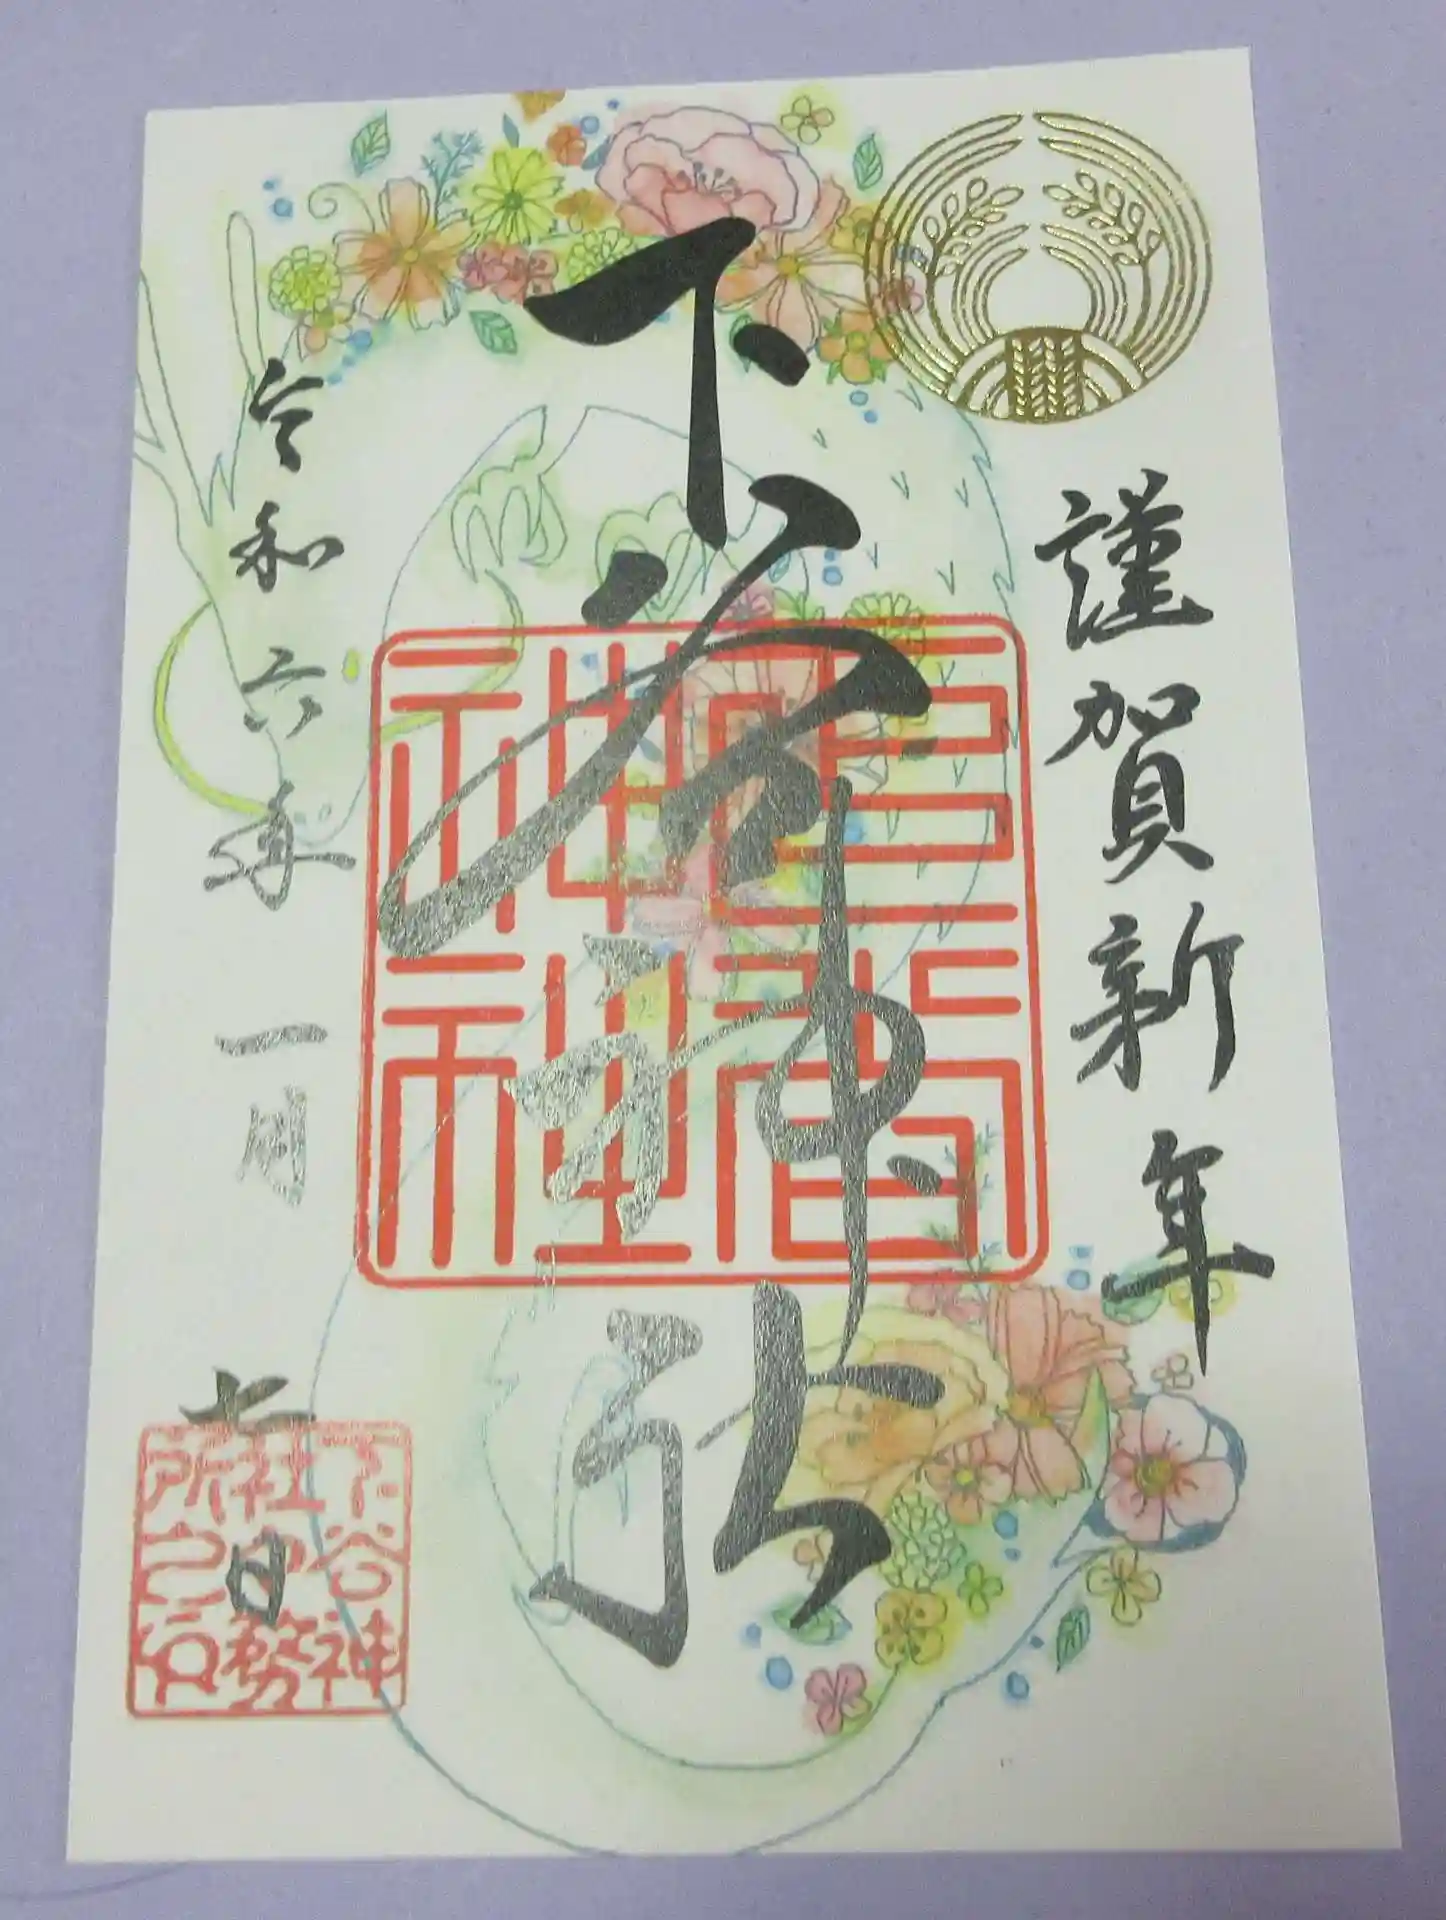 謹賀新年
下谷神社
下谷神社
下谷神社社務所之印
令和六年一月吉日